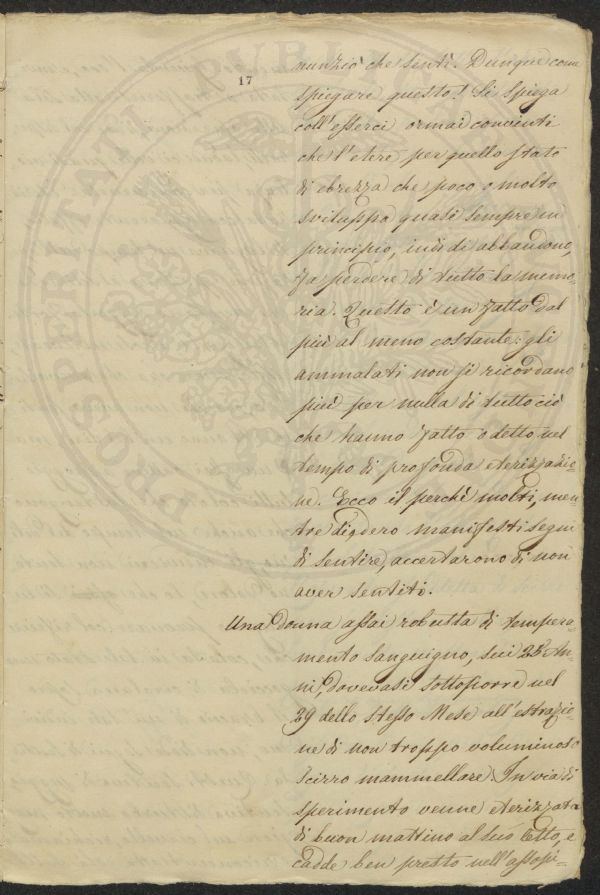 17
nunziò che sentì. Dunque come
spiegare questo! Si spiega
coll'esserci ormai convinti
che l'etere per quello stato
di ebrezza che poco o molto
sviluppa quasi sempre in
principio, indi di abbandono,
fa perdere di tutto la memo-
ria. Questo è un fatto dal
più al meno costante: gli
ammalati non si ricordano
più per nulla di tutto ciò
che hanno fatto o detto nel
tempo di profonda eterizzazio-
ne. Ecco il perchè molti, men-
tre diedero manifesti segni
di sentire, accertarono di non
aver sentiti.
Una donna assai robusta di tempera-
mento sanguigno, sui 25 An-
ni, dovevasi sottoporre nel
29 dello stesso Mese all'estrazio-
ne di non troppo voluminoso
scirro mammellare. In via di
sperimento venne eterizzata
di buon mattino al suo letto, e
cadde ben presto nell'assopi-
PROSPERITATI PUBLIC